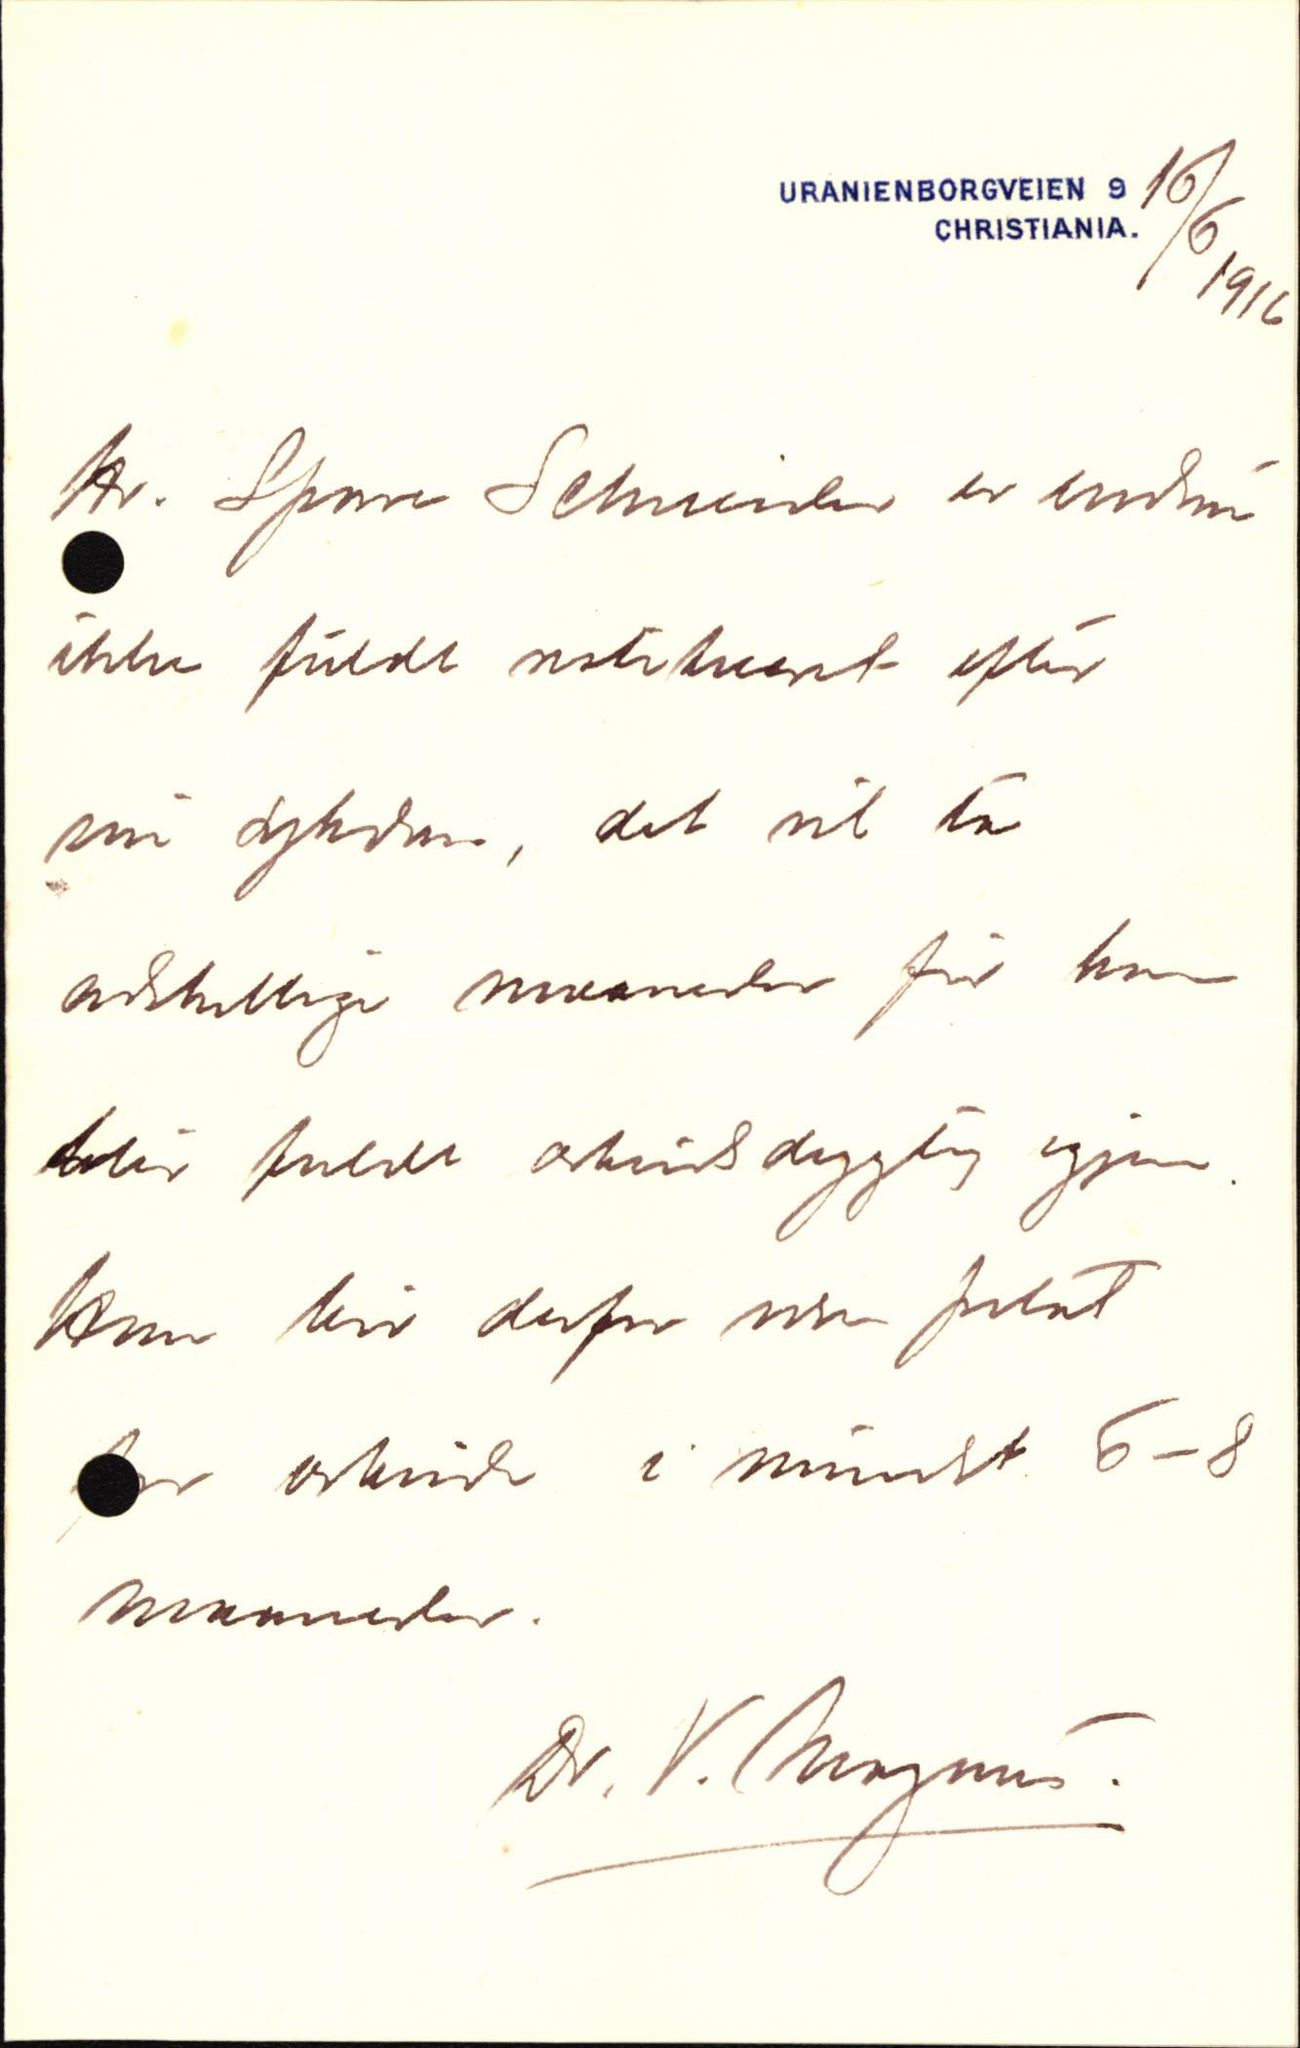 URANIENBORGVEIEN 9 16/6
CHRISTIANIA. 1916
Hr. Sparre Schneider er endnu
ikke fuldt restitueret efter
sin sykdom, det vil ta
adskillige maaneder før han
blir fuldt arbeidsdygtig igjen.
Han bør derfor være fritat
for arbeide i mindst 6-8
maaneder.
Dr. V. Magnus.